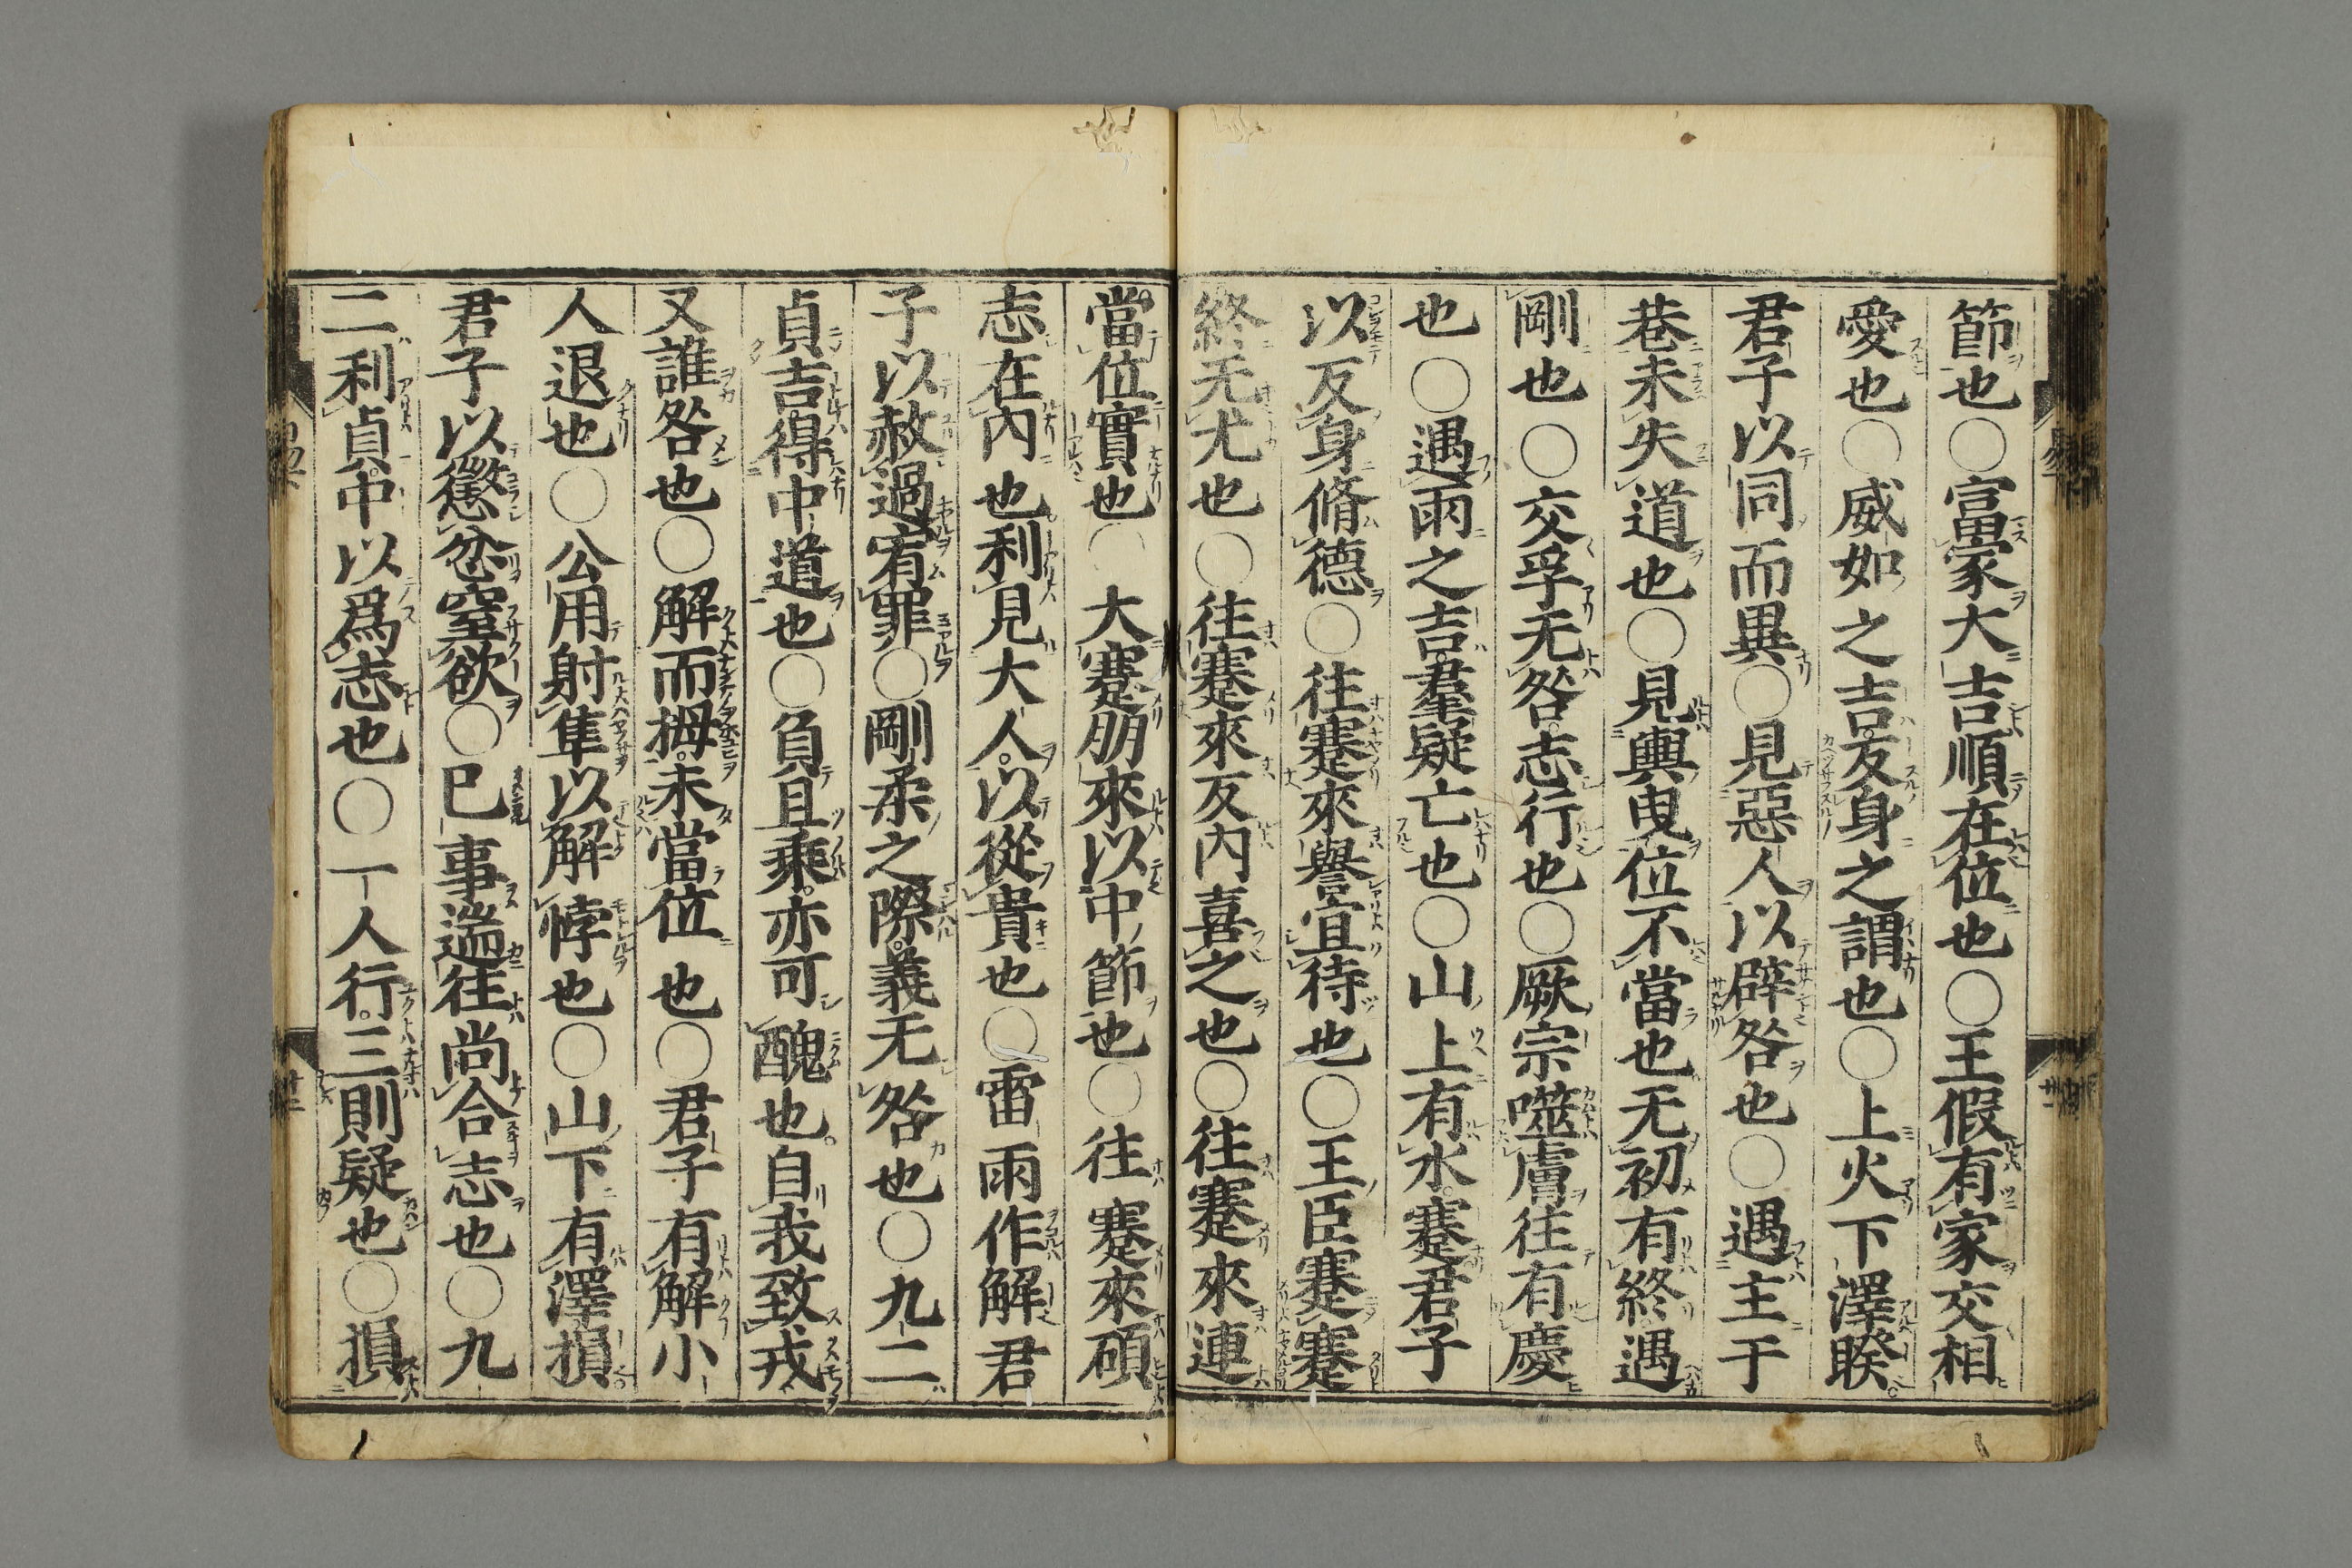 節也○富家大吉順在位也○王假有家交相
愛也○威如之吉反身之謂也○上火下澤睽
君子以同而異○見惡人以辟咎也○遇主于
巷未失道也○見輿曳位不當也无初有終遇
剛也○交孚无咎志行也○厥宗噬膚往有慶
也○遇雨之吉羣疑亡也○山上有水蹇君子
以反身脩德○往蹇來譽宜待也○王臣蹇蹇
終无尤也○往蹇來反内喜之也○往蹇來連
當位實也○大蹇朋來以中節也○往蹇來碩
志在内也利見大人以從貴也○雷雨作解君
子以赦過宥罪○剛柔之際義无咎也○九二
貞吉得中道也○負且乘亦可醜也自我致戎
又誰咎也○解而拇未當位也○君子有解小
人退也○公用射隼以解悖也○山下有澤損
君子以懲忿窒欲○巳事遄往尚合志也○九
二利貞中以爲志也○一人行三則疑也○損